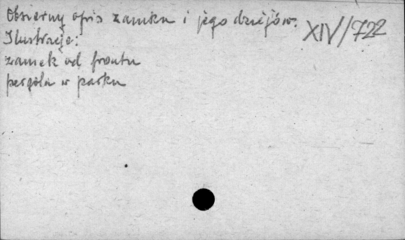 Obszerny opis zamku i jego dziejów.
XIV/722
Ilustracje:
zamek od frontu
pergola w parku